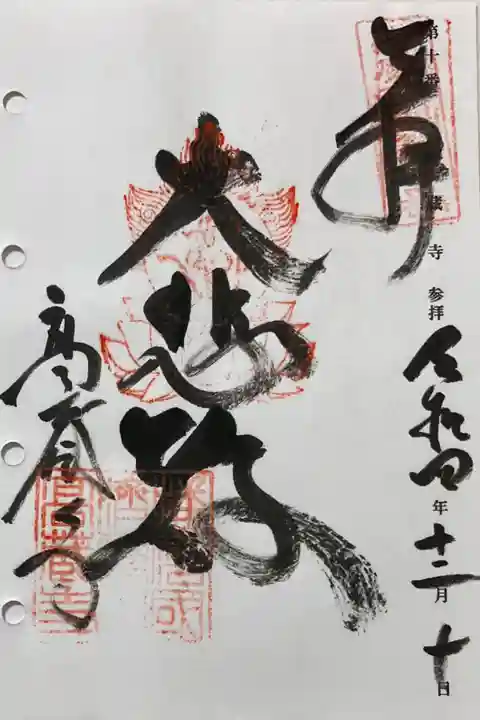 奉
第十番 蔵寺 参拝 令和四年十二月十日
大悲殿
高蔵寺